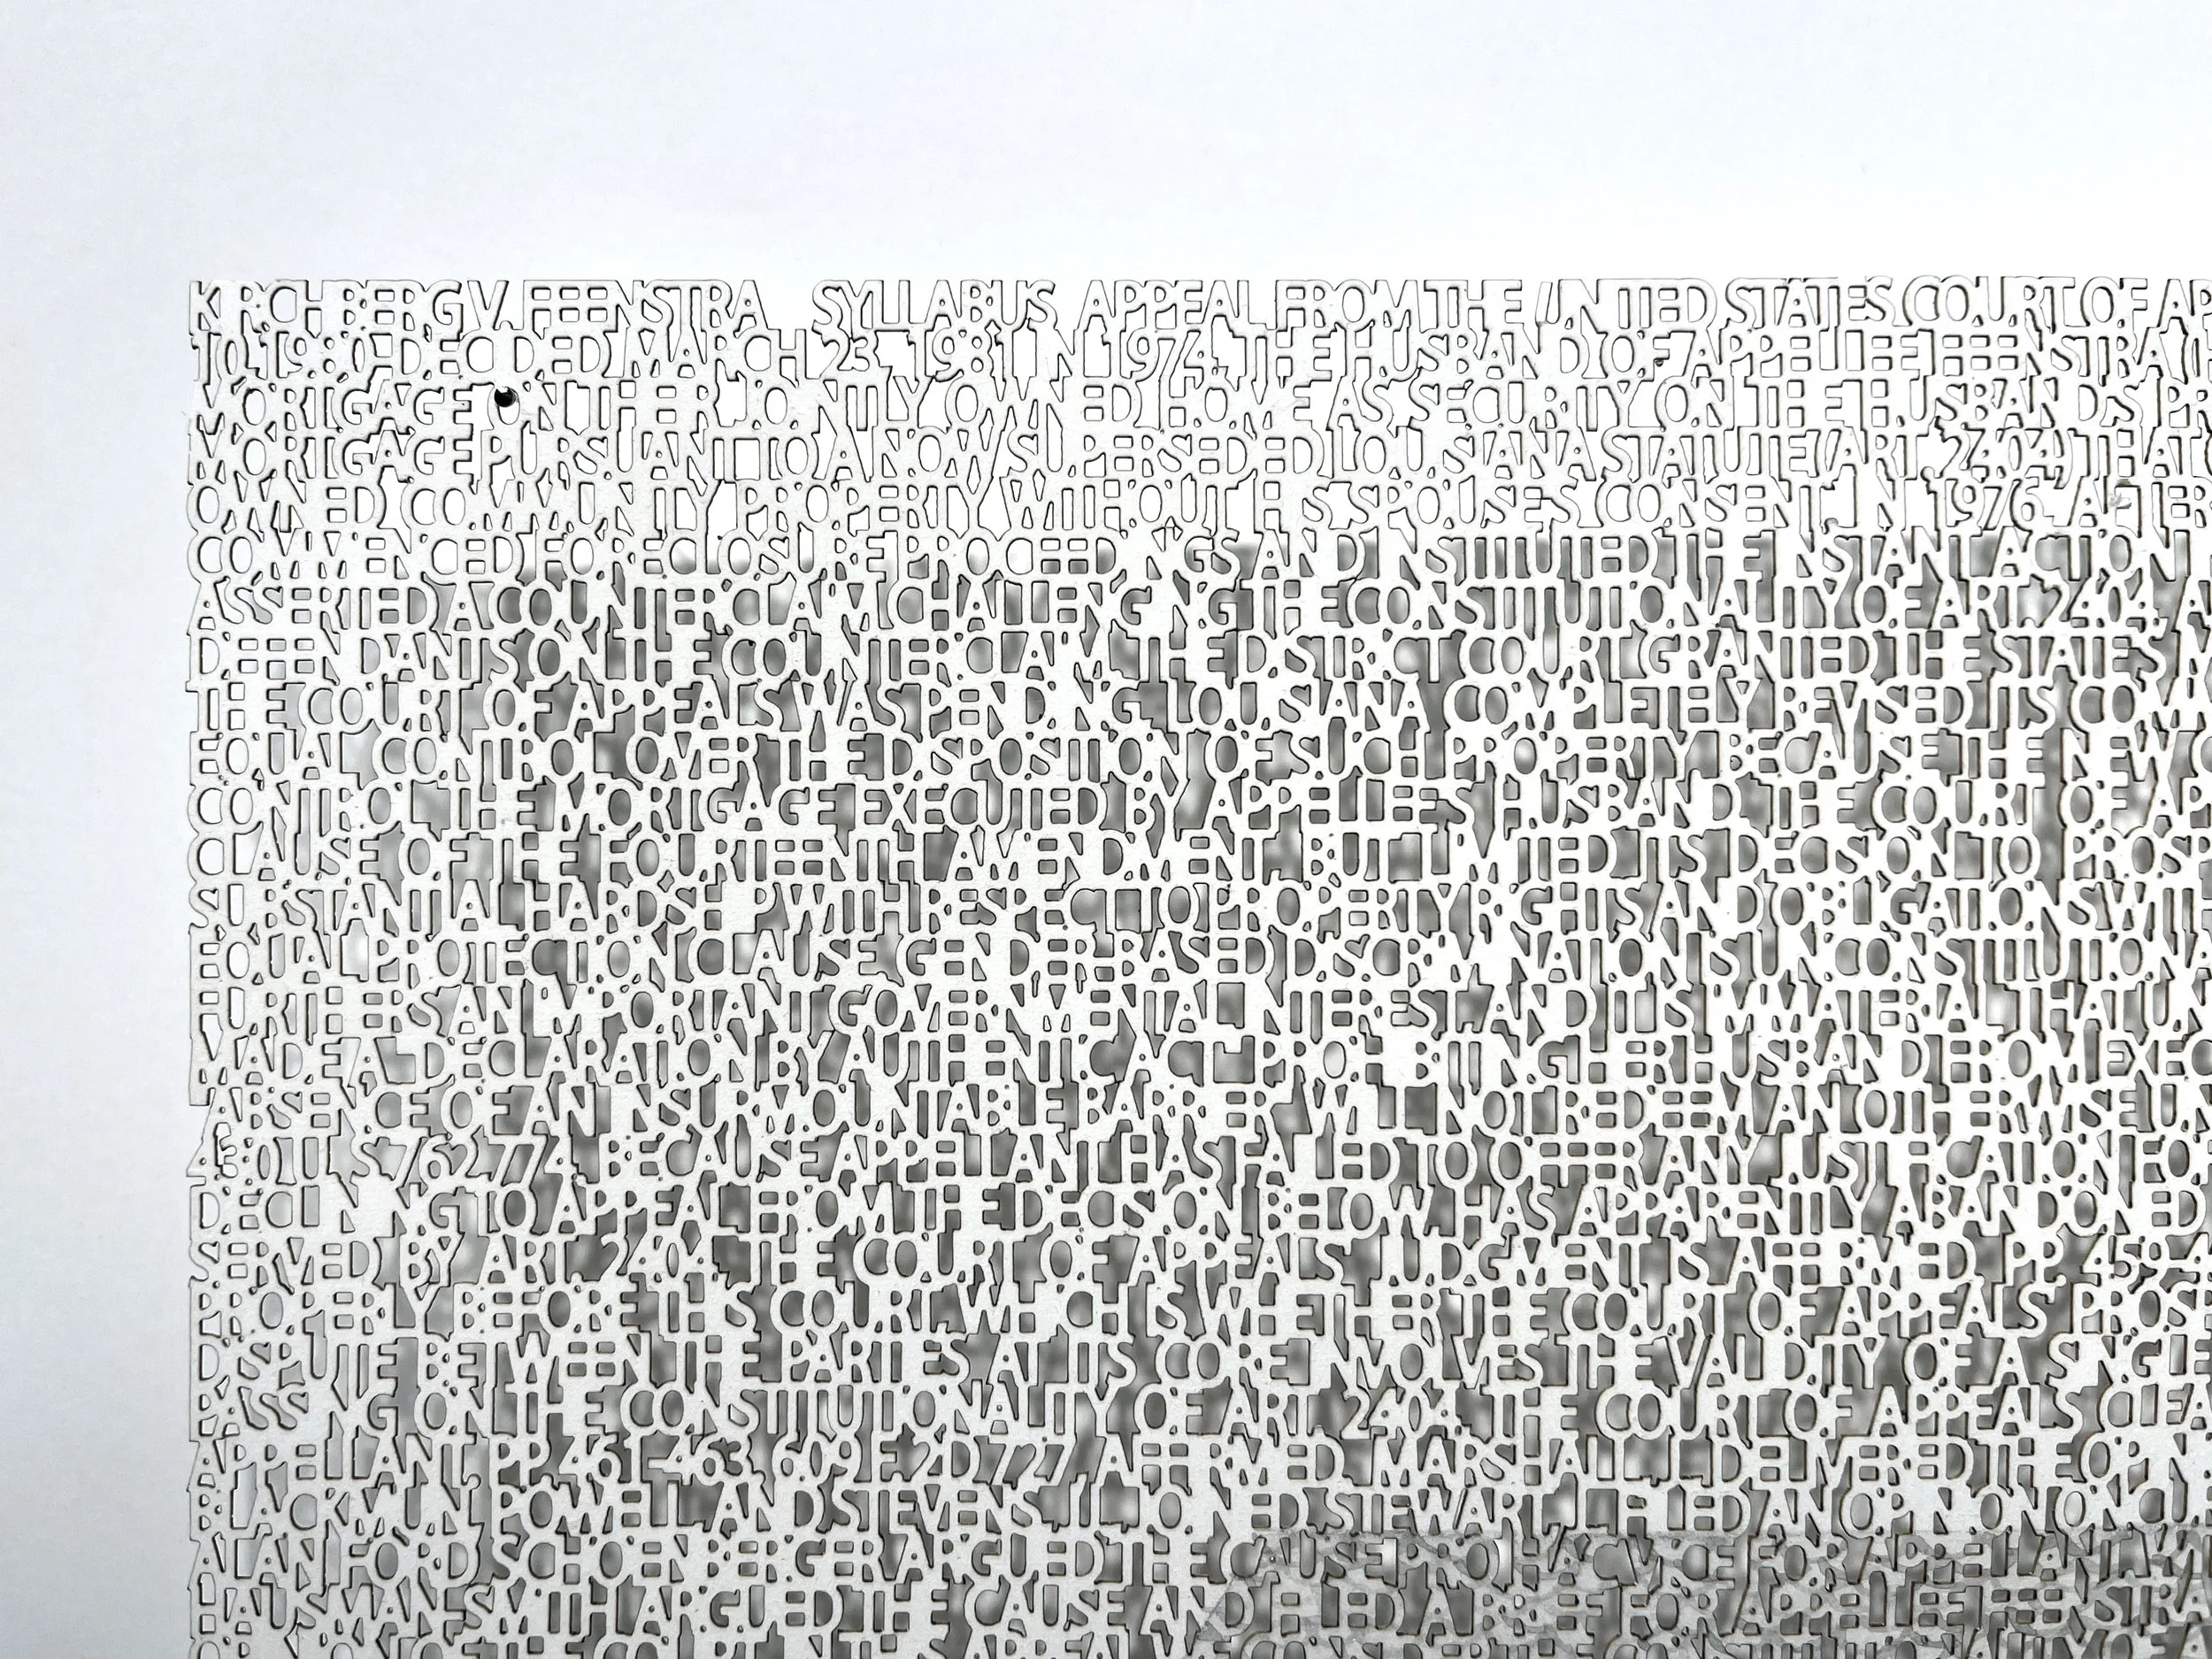 KIRCHBERG V. FEENSTRA SYLLABUS APPEAL FROM THE UNITED STATES COURT OF AP
10, 1980 DECIDED MARCH 23, 1981 IN 1974, THE HUSBAND OF APPELLEE FEENSTRA TH
MORTGAGE ON THEIR JOINTLY OWNED HOME AS SECURITY ON THE HUSBAND'S PR
MORTGAGE PURSUANT TO A NOW SUPERSEDED LOUISIANA STATUTE (ART. 2404) THAT
OWNED COMMUNITY PROPERTY WITHOUT HIS SPOUSE'S CONSENT. IN 1976, AFTER
COMMENCED FORECLOSURE PROCEEDINGS AND INSTITUTED THE INSTANT ACTION IN
ASSERTED A COUNTERCLAIM CHALLENGING THE CONSTITUTIONALITY OF ART. 2404. A
DEFENDANTS ON THE COUNTERCLAIM. THE DISTRICT COURT GRANTED THE STATE'S M
THE COURT OF APPEALS WAS PENDING, LOUISIANA COMPLETELY REVISED ITS CO
EQUAL CONTROL OVER THE DISPOSITION OF SUCH PROPERTY. BECAUSE THE NEW C
CONTROL THE MORTGAGE EXECUTED BY APPELLEE'S HUSBAND, THE COURT OF AP
CLAUSE OF THE FOURTEENTH AMENDMENT, BUT LIMITED ITS DECISION TO PROSP
SUBSTANTIAL HARDSHIP WITH RESPECT TO PROPERTY RIGHTS AND OBLIGATIONS WITH
EQUAL PROTECTION CLAUSE. GENDER-BASED DISCRIMINATION IS UNCONSTITUTIONA
FURTHERS AN IMPORTANT GOVERNMENTAL INTEREST, AND IT IS IMMATERIAL THAT UN
MADE A "DECLARATION BY AUTHENTIC ACT" PROHIBITING HER HUSBAND FROM EXEC
ABSENCE OF AN INSURMOUNTABLE BARRIER WILL NOT REDEEM AN OTHERWISE UN
430 U.S. 762, 774. BECAUSE APPELLANT HAS FAILED TO OFFER ANY JUSTIFICATION FO
DECLINING TO APPEAL FROM THE DECISION BELOW, HAS APPARENTLY ABANDONED
SERVED BY ART. 2404, THE COURT OF APPEALS' JUDGMENT IS AFFIRMED. PP. 45
PROPERLY BEFORE THIS COURT WHICH IS WHETHER THE COURT OF APPEALS' PROSP
DISPUTE BETWEEN THE PARTIES AT ITS CORE INVOLVES THE VALIDITY OF A SINGLE
PASSING ON THE CONSTITUTIONALITY OF ART. 2404, THE COURT OF APPEALS CLEA
APPELLANT. PP. 461-463. 609 F.2D 727, AFFIRMED. MARSHALL, J., DELIVERED THE OPIN
BLACKMUN, POWELL, AND STEVENS, JJ., JOINED. STEWART, J., FILED AN OPINION CO
ALAN FORD SCHOENBERGER ARGUED THE CAUSE PRO HAC VICE FOR APPELLANT. W
HAUSMANN SMITH ARGUED THE CAUSE AND FILED A BRIEF FOR APPELLEE FEENSTRA